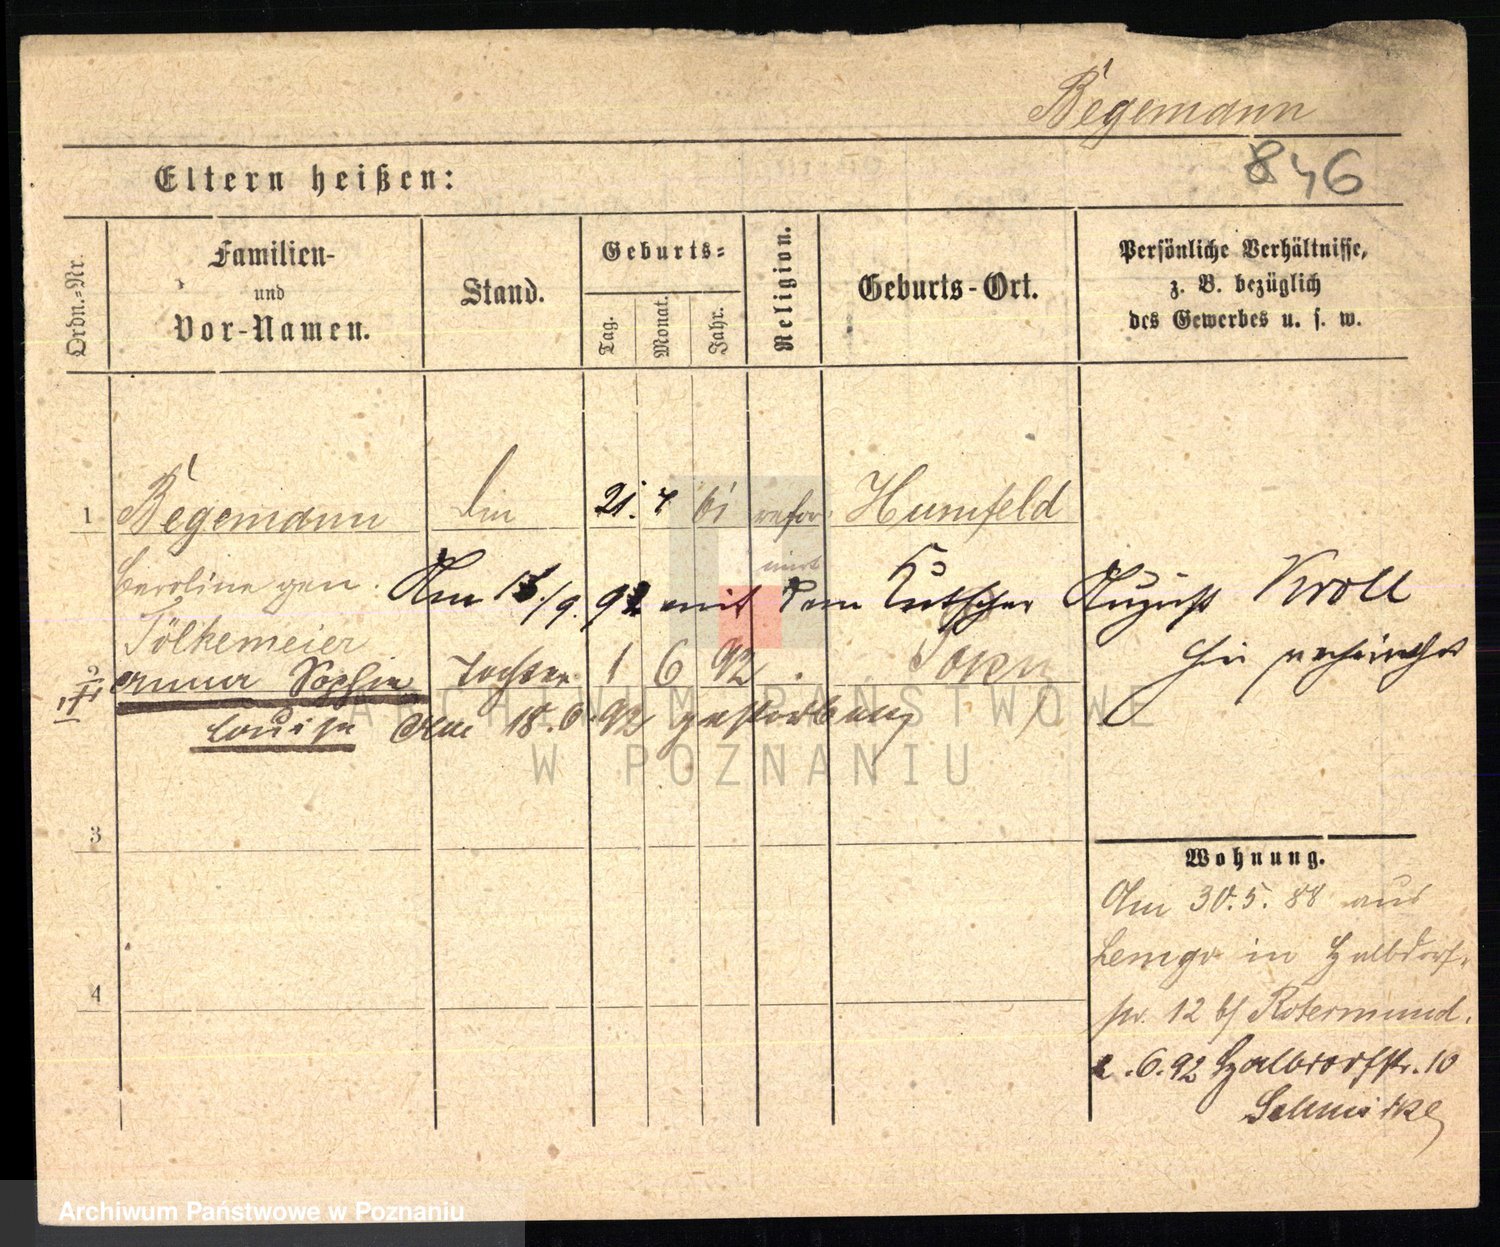 Begemann
846
Eltern heißen:
Ordn.-Nr.
Familien-
und
Vor-Namen.
Stand.
Geburts-
Tag.
Monat.
Jahr.
Religion.
Geburts-Ort.
Persönliche Verhältnisse,
z. B. bezüglich
des Gewerbes u. s. w.
1 Begemann 21. 4 61 refor- Humfeld
mirt
Caroline gen.
Am /9. 92 mit dem Kutscher August Kroll
Tölkemeier
hier
2 Sophie Tochter 1 6 92 . Posen
Louise Am 18.6.92 gestorben
3
4
Wohnung.
Am 30.5.88 aus
Lemgo in Halbdorf-
str. 12 b/ Rotermund.
.6.92 Halbdorfstr. 10
Schmidtke
ARCHIWUM PAŃSTWOWE
W POZNANIU
Archiwum Państwowe w Poznaniu